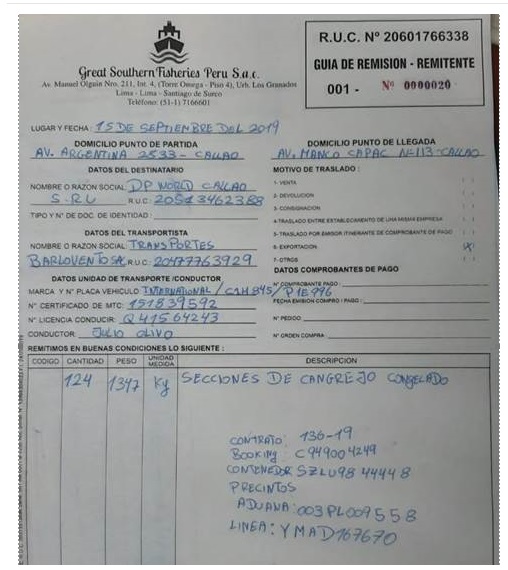 Great Southern Fisheries Peru S.a.c.
Av. Manuel Olguin Nro. 211, Int. 4, (Torre Omega - Piso 4), Urb. Los Granados
Lima - Lima - Santiago de Surco
Teléfono: (51-1) 7166601
R.U.C. Nº 20601766338
GUIA DE REMISION - REMITENTE
001 - Nº 0000020
LUGAR Y FECHA: 15 DE SEPTIEMBRE DEL 2019
DOMICILIO PUNTO DE PARTIDA
AV. ARGENTINA 2533 - CALLAO
DOMICILIO PUNTO DE LLEGADA
AV. MANCO CAPAC Nº 113 - CALLAO
DATOS DEL DESTINATARIO
NOMBRE O RAZON SOCIAL DP WORLD CALLAO
S.R.U R.U.C: 20513462388
TIPO Y Nº DE DOC. DE IDENTIDAD:
MOTIVO DE TRASLADO:
1- VENTA ( )
2- DEVOLUCION ( )
3- CONSIGNACION ( )
4-TRASLADO ENTRE ESTABLECIMIENTO DE UNA MISMA EMPRESA ( )
5- TRASLADO POR EMISOR ITINERANTE DE COMPROBANTE DE PAGO ( )
6- EXPORTACION (X)
7- OTROS ( )
DATOS DEL TRANSPORTISTA
NOMBRE O RAZON SOCIAL TRANSPORTES
BARLOVENTO SAC R.U.C: 20477763929
DATOS COMPROBANTES DE PAGO
Nº COMPROBANTE PAGO:
FECHA EMISION COMPRO / PAGO:
Nº PEDIDO:
Nº ORDEN COMPRA:
DATOS UNIDAD DE TRANSPORTE /CONDUCTOR
MARCA Y Nº PLACA VEHICULO INTERNATIONAL / C1H845/P1E996
Nº CERTIFICADO DE MTC: 151839592
Nº LICENCIA CONDUCIR: Q41564243
CONDUCTOR: JULIO OLIVO
REMITIMOS EN BUENAS CONDICIONES LO SIGUIENTE:
CODIGO CANTIDAD PESO UNIDAD MEDIDA DESCRIPCION
124 1347 Kg SECCIONES DE CANGREJO CONGELADO
CONTRATO: 136-19
BOOKING: C949004249
CONTENEDOR SZLU9844448
PRECINTOS
ADUANA: 003PL009558
LINEA: YMAD167670